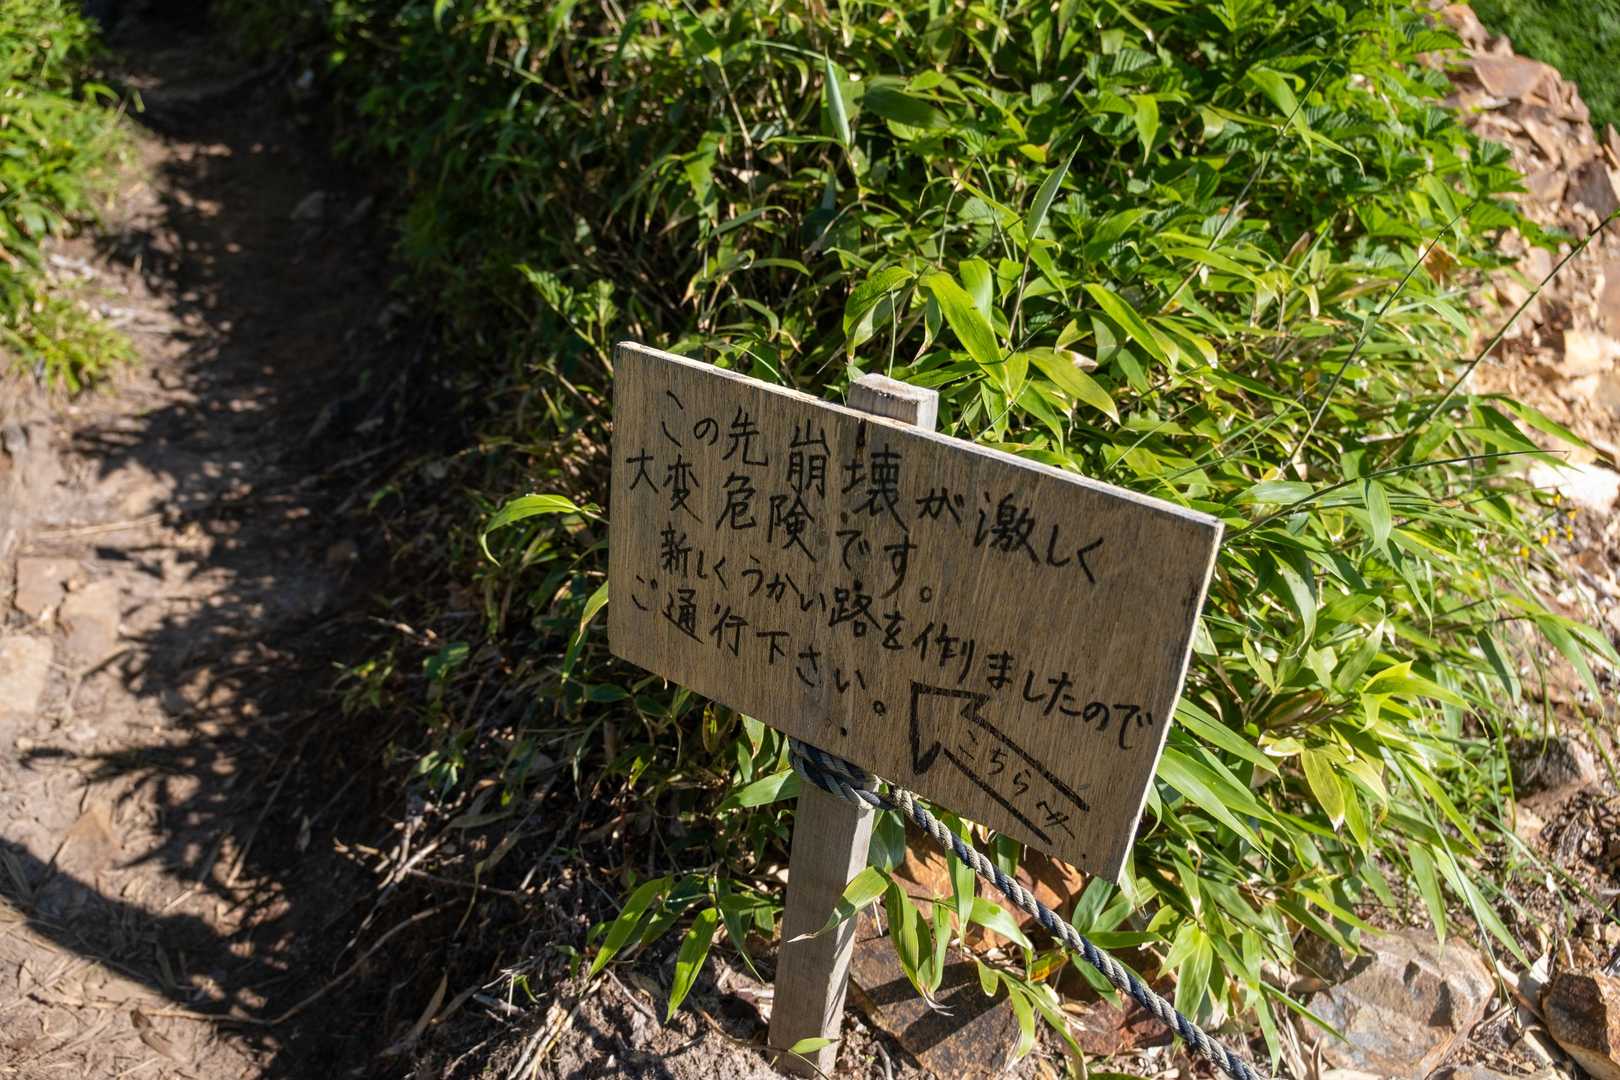 この先崩壊が激しく
大変危険です。
新しくうかい路を作りましたので
ご通行下さい。
こちらへ